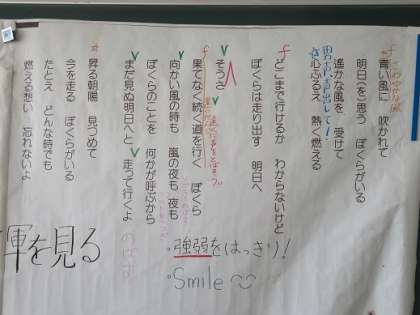 青い風に 吹かれて
明日を思う ぼくがいる
遥かな風を 受けて
心ふるえ 熱く燃える
どこまで行けるか わからないけど
ぼくらは走り出す 明日へ
そうさ
果てなく続く道を行く ぼくら
向かい風の時も 嵐の夜も 夜も
ぼくらのことを 何かが呼ぶから
まだ見ぬ明日へと 走って行くよ
のばす
昇る朝陽 見つめて
今を走る ぼくらがいる
たとえ どんな時でも
燃える想い 忘れないよ
強弱をはっきり!
Smile
軍を見る